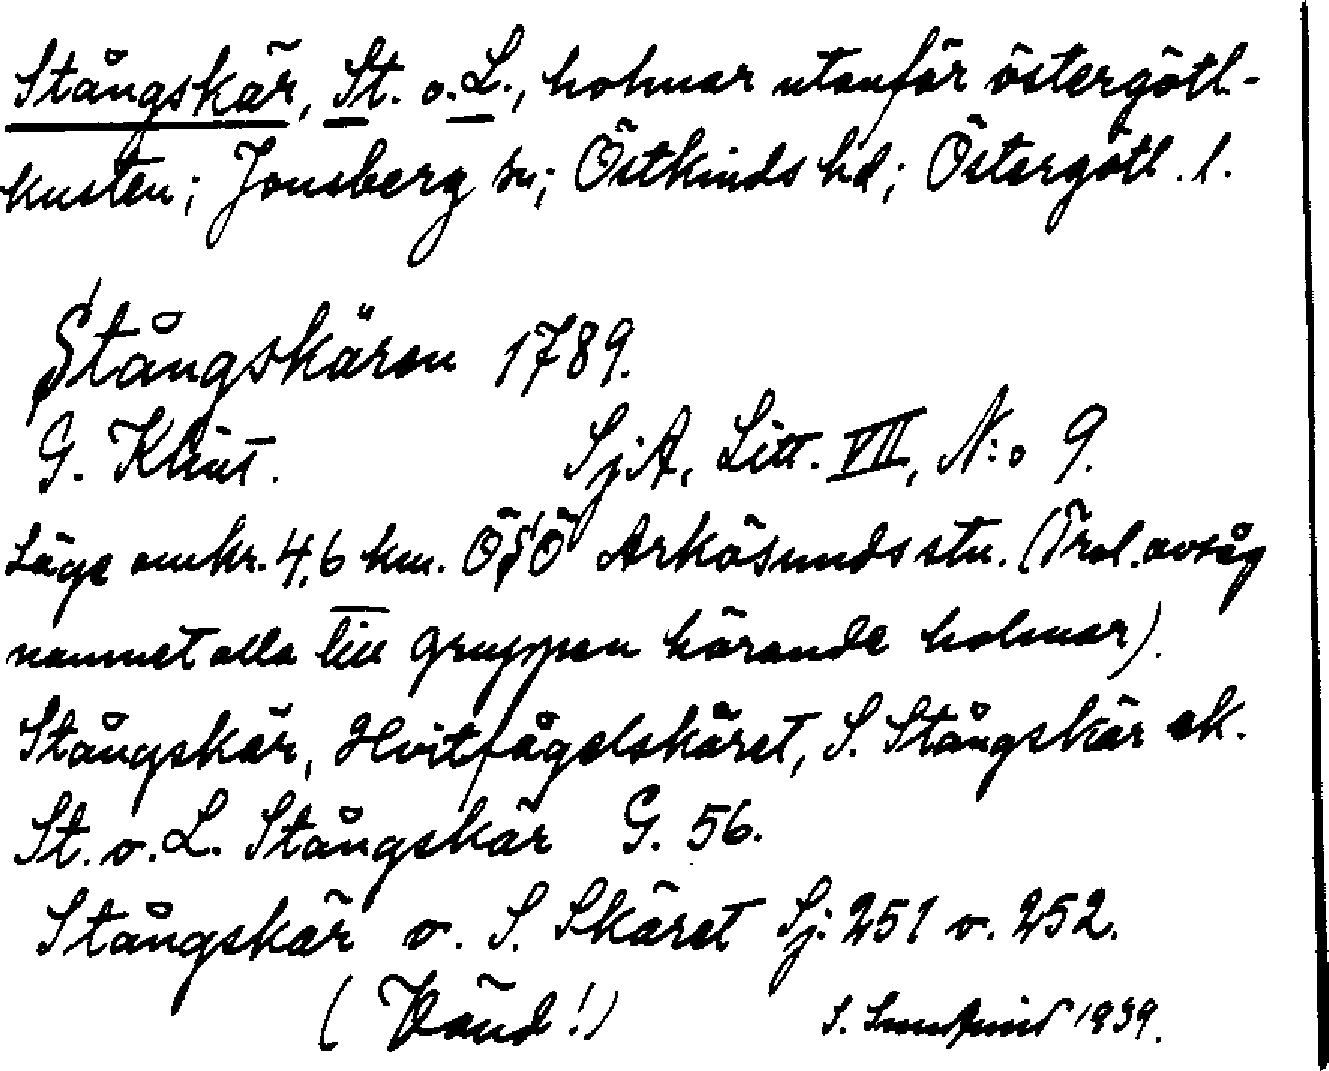 Stångskär, St. o. L., holmar utanför östergötl.-
kusten; Jonsberg sn; Östkinds hd; Östergötl. l.
Stångskären 1789.
G. Klint. SjA, Litt. VII, N:o 9.
Läge omkr. 4,6 km. ÖSÖ Arkösunds stn. (Trol. avsåg
namnet alla till gruppen hörande holmar).
Stångskär, Hvitfågelskäret, S. Stångskär ek.
St. o. L. Stångskär G. 56.
Stångskär o. S. Skäret Sj: 251 o. 252.
(Vänd!) S. 1939.